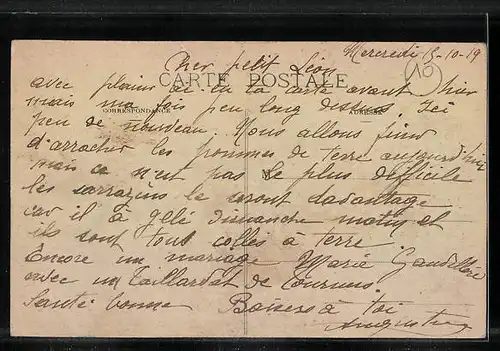 Mercredi 15-10-19
Cher petit Léon
CARTE POSTALE
avec plaisir ai eu ta carte avant hier
CORRESPONDANCE ADRESSE
mais ma fois peu long dessus. Ici
peu de nouveau. Nous allons finir
d'arracher les pommes de terre aujourd'hui
mais ce n'est pas le plus difficile
les sarrazins le seront davantage
car il a gelé dimanche matin et
ils sont tous collés à terre
Encore un mariage Marie
avec un Taillardat de Tournus
Santé bonne Baisers à toi